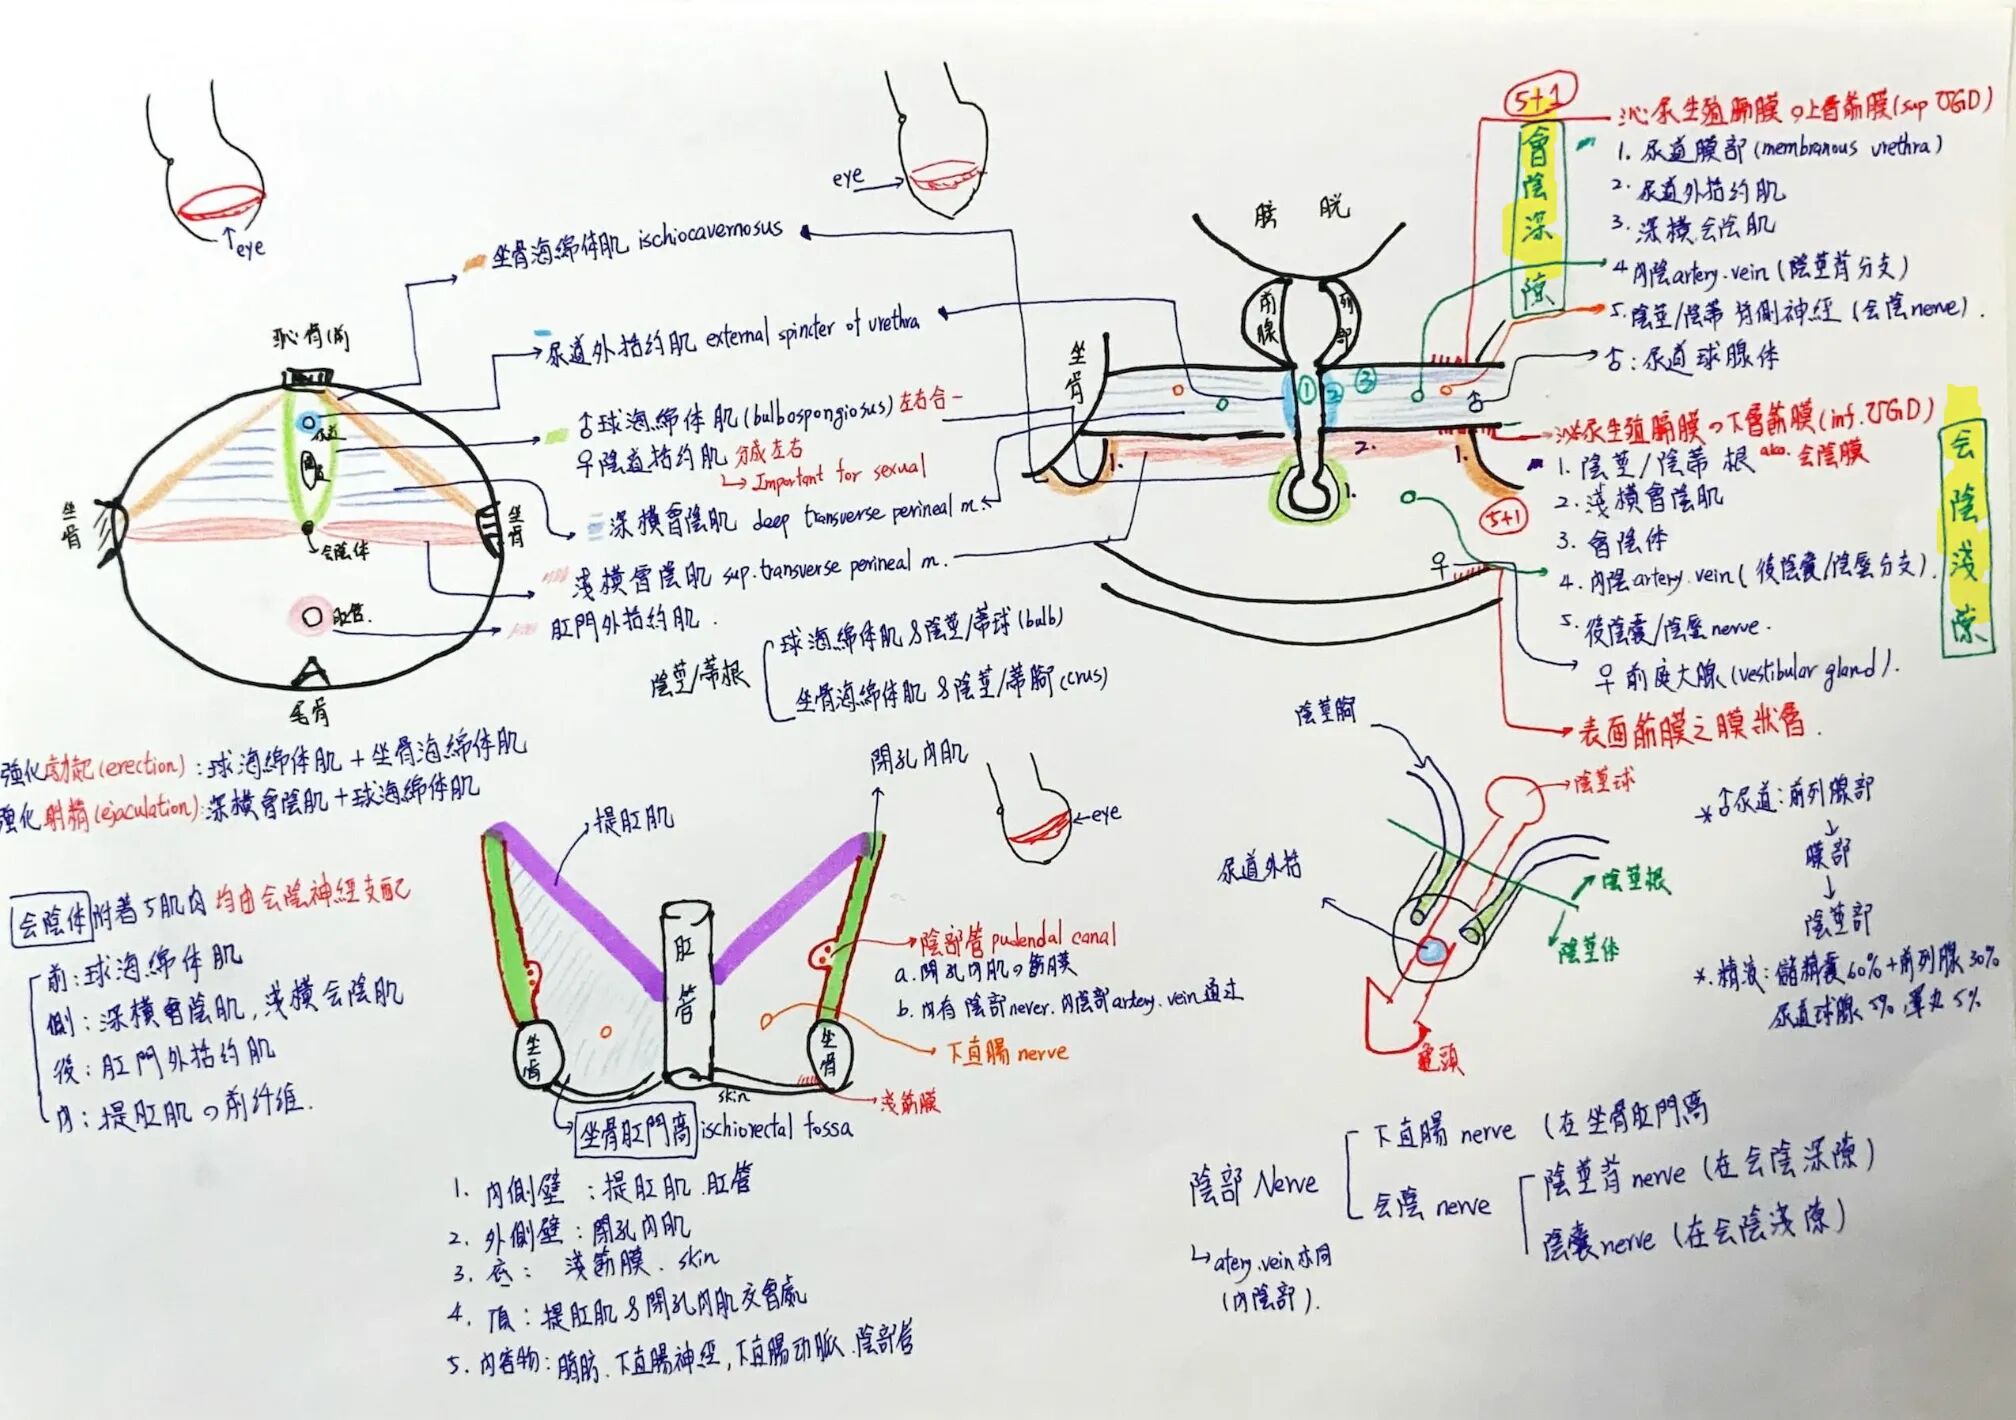 ↑eye
eye→
坐骨海綿体肌 ischiocavernosus
尿道外括約肌 external spincter of urethra
♂球海綿体肌(bulbospongiosus)左右合一
♀陰道括約肌 分成左右
↳ Important for sexual
深橫會陰肌 deep transverse perineal m.
淺橫會陰肌 sup. transverse perineal m.
肛門外括約肌.
恥骨(前)
尿道
坐骨
坐骨
会陰体
肛管.
尾骨
陰莖/蒂根
球海綿体肌&陰莖/蒂球(bulb)
坐骨海綿体肌&陰莖/蒂腳(crus)
膀胱
前列
腺部
坐骨
① ② ③
♂
1. 2. 1.
1.
♀
5+1
會陰深隙
泌尿生殖膈膜の上層筋膜(sup UGD)
1. 尿道膜部(membranous urethra)
2. 尿道外括約肌
3. 深橫会陰肌
4. 內陰artery.vein(陰莖背分支)
5. 陰莖/陰蒂背側神經(会陰nerve).
♂:尿道球腺体
泌尿生殖膈膜の下層筋膜(inf. UGD)
aka. 会陰膜
会陰淺隙
5+1
1. 陰莖/陰蒂根
2. 淺橫會陰肌
3. 會陰体
4. 內陰artery.vein(後陰囊/陰唇分支).
5. 後陰囊/陰唇nerve.
♀前庭大腺(vestibular gland).
表面筋膜之膜狀層.
強化勃起(erection):球海綿体肌+坐骨海綿体肌
強化射精(ejaculation):深橫會陰肌+球海綿体肌
会陰体附着5肌肉 均由会陰神經支配
前:球海綿体肌
側:深橫會陰肌,淺橫会陰肌
後:肛門外括約肌
內:提肛肌の前纤維.
提肛肌
閉孔內肌
←eye
肛管
坐骨
坐骨
skin
陰部管 pudendal canal
a. 閉孔內肌の筋膜
b. 內有陰部never.內陰部artery.vein通过
下直腸 nerve
淺筋膜
坐骨肛門窩 ischiorectal fossa
1. 內側壁:提肛肌.肛管
2. 外側壁:閉孔內肌
3. 底:淺筋膜.skin
4. 頂:提肛肌&閉孔內肌交會處
5. 內容物:脂肪.下直腸神經,下直腸动脈.陰部管
陰莖腳
陰莖球
尿道外括
陰莖根
陰莖体
龜頭
*♂尿道:前列腺部
↓
膜部
↓
陰莖部
*.精液:儲精囊60%+前列腺30%
尿道球腺5%,睪丸5%
陰部 Nerve
下直腸 nerve (在坐骨肛門窩
会陰 nerve
陰莖背nerve(在会陰深隙)
陰囊nerve(在会陰淺隙)
↳atery.vein亦同
(內陰部).